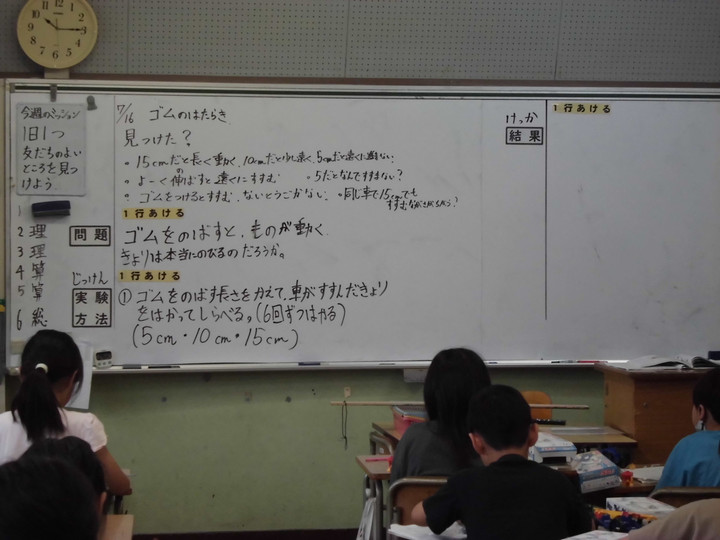 今週のミッション
1日1つ
友だちのよい
ところを見つ
けよう
1
2 理
3 理
4 算
5 算
6 総
7/16 ゴムのはたらき
見つけた?
・15cmだと長く動く、10cmだと少し遠く、5cmだと遠くに進まない
・よーくの伸ばすと遠くにすすむ ・5だとなんですすまない?
・ゴムをつけるとすすむ、ないとうごかない ・同じ車で15cmでも
すすむながさがちがう?
1行あける
問題
ゴムをのばすと、ものが動く
きょりは本当にのびるのだろうか。
1行あける
じっけん
実験
方法
① ゴムをのばす長さをかえて、車がすすんだきょり
をはかってしらべる。(6回ずつはかる)
(5cm・10cm・15cm)
けっか
結果
1行あける